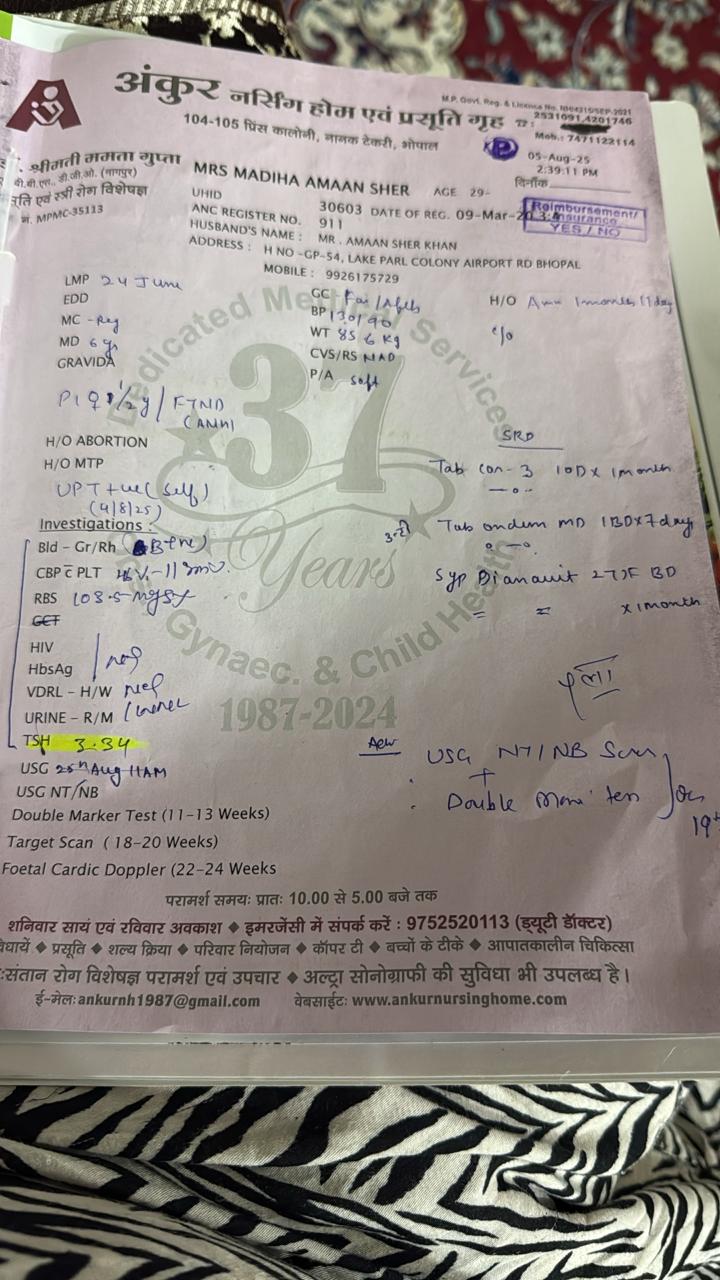 अंकुर नर्सिंग होम एवं प्रसूति गृह
M.P. Govt. Reg. & Licence No.
104-105 प्रिंस कालोनी, नानक टेकरी, भोपाल
2531091,4201746
Mob.: 7471122114
श्रीमती ममता गुप्ता
बी.बी.एस., डी.जी.ओ. (नागपुर)
एवं स्त्री रोग विशेषज्ञ
MPMC-35113
05-Aug-25
2:39:11 PM
दिनाँक
MRS MADIHA AMAAN SHER AGE 29-
UHID 30603 DATE OF REG. 09-Mar-
Reimbursement/
Insurance
YES / NO
ANC REGISTER NO. 911
HUSBAND'S NAME : MR . AMAAN SHER KHAN
ADDRESS : H NO -GP-54, LAKE PARL COLONY AIRPORT RD BHOPAL
MOBILE : 9926175729
LMP 24 June
EDD
MC - Reg
MD 6 yr
GRAVIDA
GC
BP 130/90
WT 85.6 kg
CVS/RS NAD
P/A soft
H/O 1 month 11 day
c/o
FTND
H/O ABORTION
H/O MTP
UPT +ve (self)
(4/8/25)
Investigations :
Bld – Gr/Rh B+ve
CBP c̄ PLT
RBS 103.5
GCT
HIV
HbsAg
VDRL – H/W
URINE – R/M
TSH 3.34
USG 25th Aug 11AM
USG NT/NB
Double Marker Test (11-13 Weeks)
Target Scan ( 18-20 Weeks)
Foetal Cardic Doppler (22-24 Weeks
Tab con-3 1OD x 1month
Tab ondem MD 1BD x 7 day
Syp 2TSF BD
x 1month
Adv USG NT/NB Scan
+
Double
Dedicated Medical Services
37
Years
Gynaec. & Child Health
1987-2024
परामर्श समय: प्रात: 10.00 से 5.00 बजे तक
शनिवार सायं एवं रविवार अवकाश ◆ इमरजेंसी में संपर्क करें : 9752520113 (ड्यूटी डॉक्टर)
◆ प्रसूति ◆ शल्य क्रिया ◆ परिवार नियोजन ◆ कॉपर टी ◆ बच्चों के टीके ◆ आपातकालीन चिकित्सा
संतान रोग विशेषज्ञ परामर्श एवं उपचार ◆ अल्ट्रा सोनोग्राफी की सुविधा भी उपलब्ध है।
ई-मेल: ankurnh1987@gmail.com वेबसाईट: www.ankurnursinghome.com